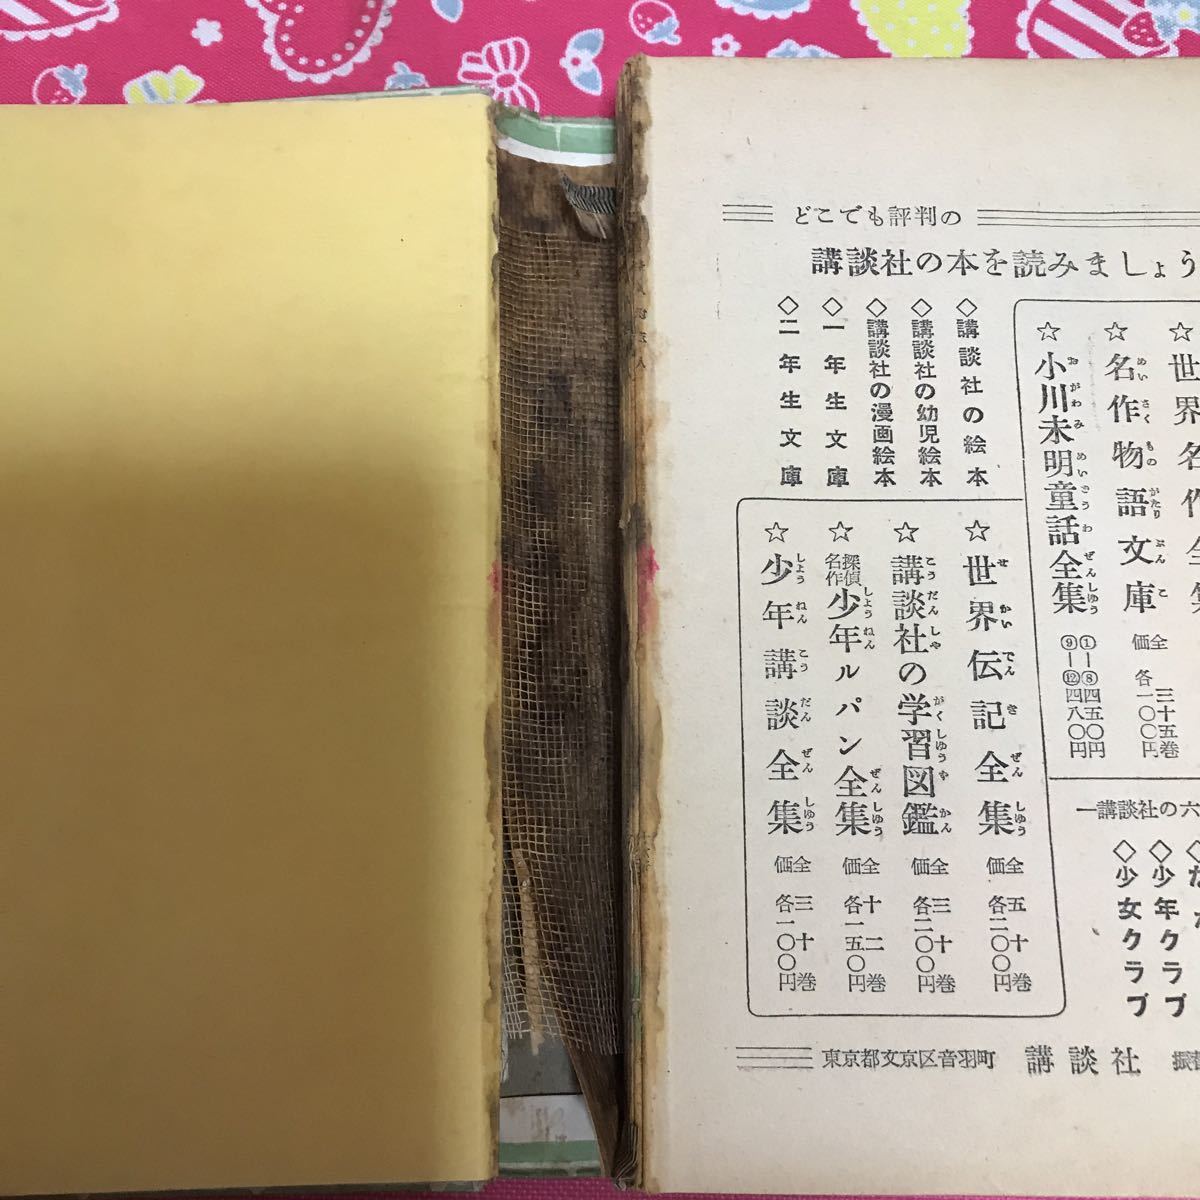 どこでも評判の
講談社の本を読みましょう
世界名作全集
☆名作物語文庫 全三十五巻 価各一〇〇円
☆小川未明童話全集 ①―⑧四五〇円 ⑨―⑫四八〇円
◇講談社の絵本
◇講談社の幼児絵本
◇講談社の漫画絵本
◇一年生文庫
◇二年生文庫
☆世界伝記全集 全五十巻 価各二〇〇円
☆講談社の学習図鑑 全三十巻 価各二〇〇円
☆探偵名作少年ルパン全集 全十二巻 価各一五〇円
☆少年講談全集 全三十巻 価各一〇〇円
―講談社の六
◇少年クラブ
◇少女クラブ
東京都文京区音羽町 講談社 振替